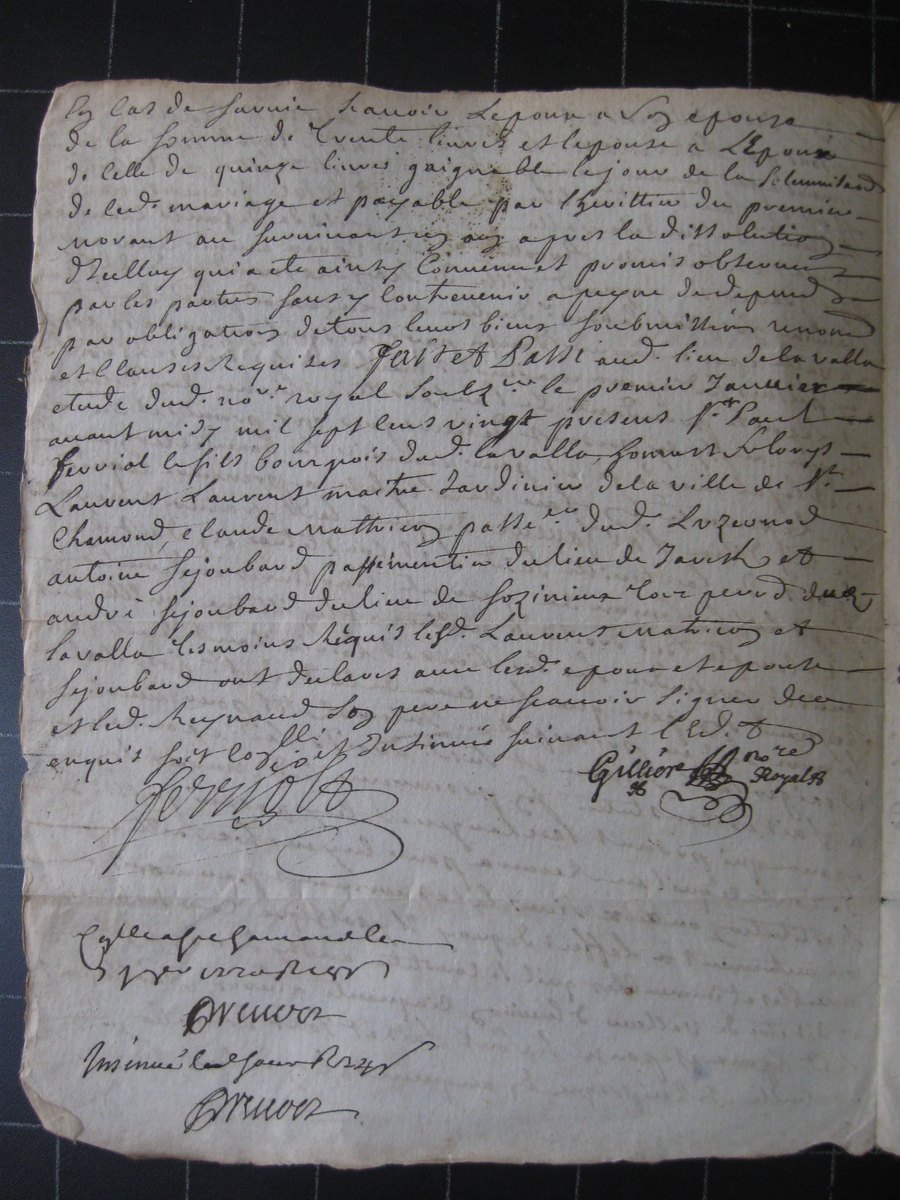 En cas de survie scavoir Lepoux a Son epouse
de la somme de Trente livres et lepouse a LEpoux
de celle de quinze livres gaignable le jour de la Solemnisaon
de led. mariage et payable par lheritier du premier
morant au survivant un an apres la dissolution
dicelluy qui a ete ainsy Convenu et promis observer
par les parties sans y Contrevenir a peyne de depend
par obligations de tous leurs biens soubmissions renon
et Clauses Requises fait et Passé aud. lieu de lavalla
etude dud. nore. royal Soubz.né le premier Janvier
avant midy mil sept cens vingt presens Sr. Paul
ferriol le fils bourgois dud. lavalla, honnest
Laurent Laurent maitre Jardinier de la ville de St.
Chamond, Claude Mathieu passe.er dud.
antoine Sejoubard passementier du lieu de et
andré Sejoubard du lieu de
lavalla Tesmoins Requis lesd. Laurens Mathieu et
Sejoubard ont declaré avec lesd. epoux et epouse
et led. Reynaud Son pere ne scavoir Signer de ce
enquis soit et Insinué suivant l'Ed. &
ferriol Gillière nore
Royal

Insinué led jour